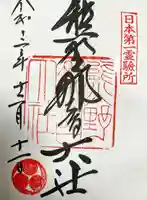 日本第一霊験所
熊野那智大社
令和三年十二月十一日